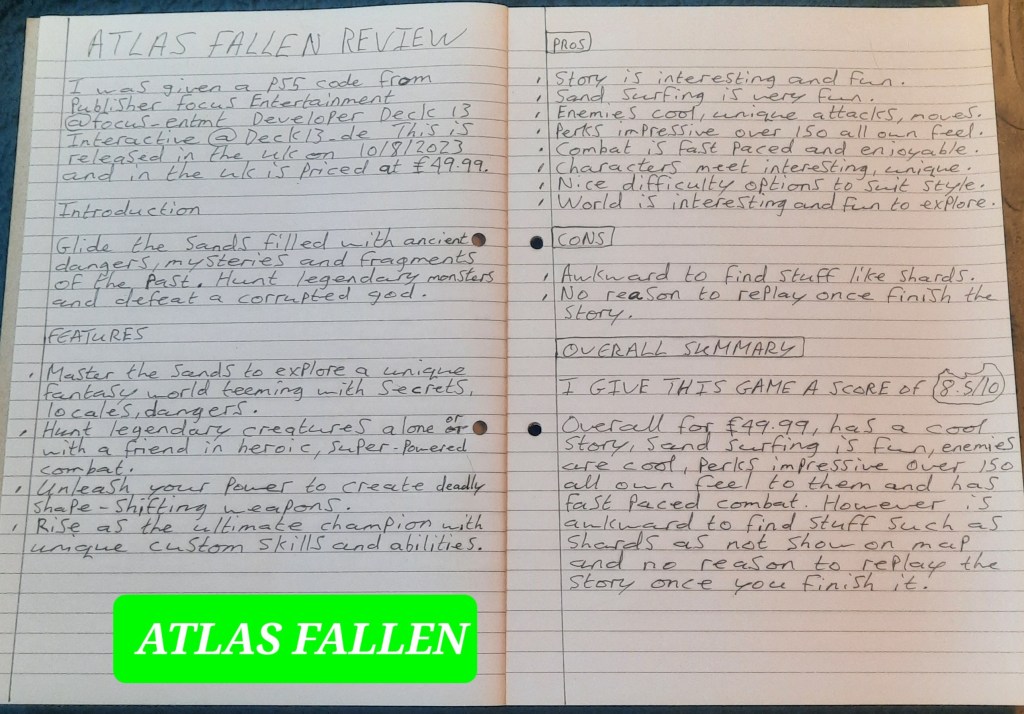 ATLAS FALLEN REVIEW
I was given a PS5 code from
Publisher focus Entertainment
@focus_entmt Developer Deck 13
Interactive @Deck13_de This is
released in the uk on 10/8/2023
and in the uk is priced at £49.99.
Introduction
Glide the sands filled with ancient
dangers, mysteries and fragments
of the past. Hunt legendary monsters
and defeat a corrupted god.
FEATURES
, Master the sands to explore a unique
fantasy world teeming with secrets,
locales, dangers.
, Hunt legendary creatures alone or
with a friend in heroic, super-powered
combat.
, Unleash your power to create deadly
shape-shifting weapons.
, Rise as the ultimate champion with
unique custom skills and abilities.
ATLAS FALLEN
PROS
, Story is interesting and fun.
, Sand surfing is very fun.
, Enemies cool, unique attacks, moves.
, Perks impressive over 150 all own feel.
, Combat is fast paced and enjoyable.
, Characters meet interesting, unique.
, Nice difficulty options to suit style.
, World is interesting and fun to explore.
CONS
, Awkward to find stuff like shards.
, No reason to replay once finish the
story.
OVERALL SUMMARY
I GIVE THIS GAME A SCORE OF 8.5/10
, Overall for £49.99, has a cool
story, sand surfing is fun, enemies
are cool, perks impressive over 150
all own feel to them and has
fast paced combat. However is
awkward to find stuff such as
shards as not show on map
and no reason to replay the
story once you finish it.